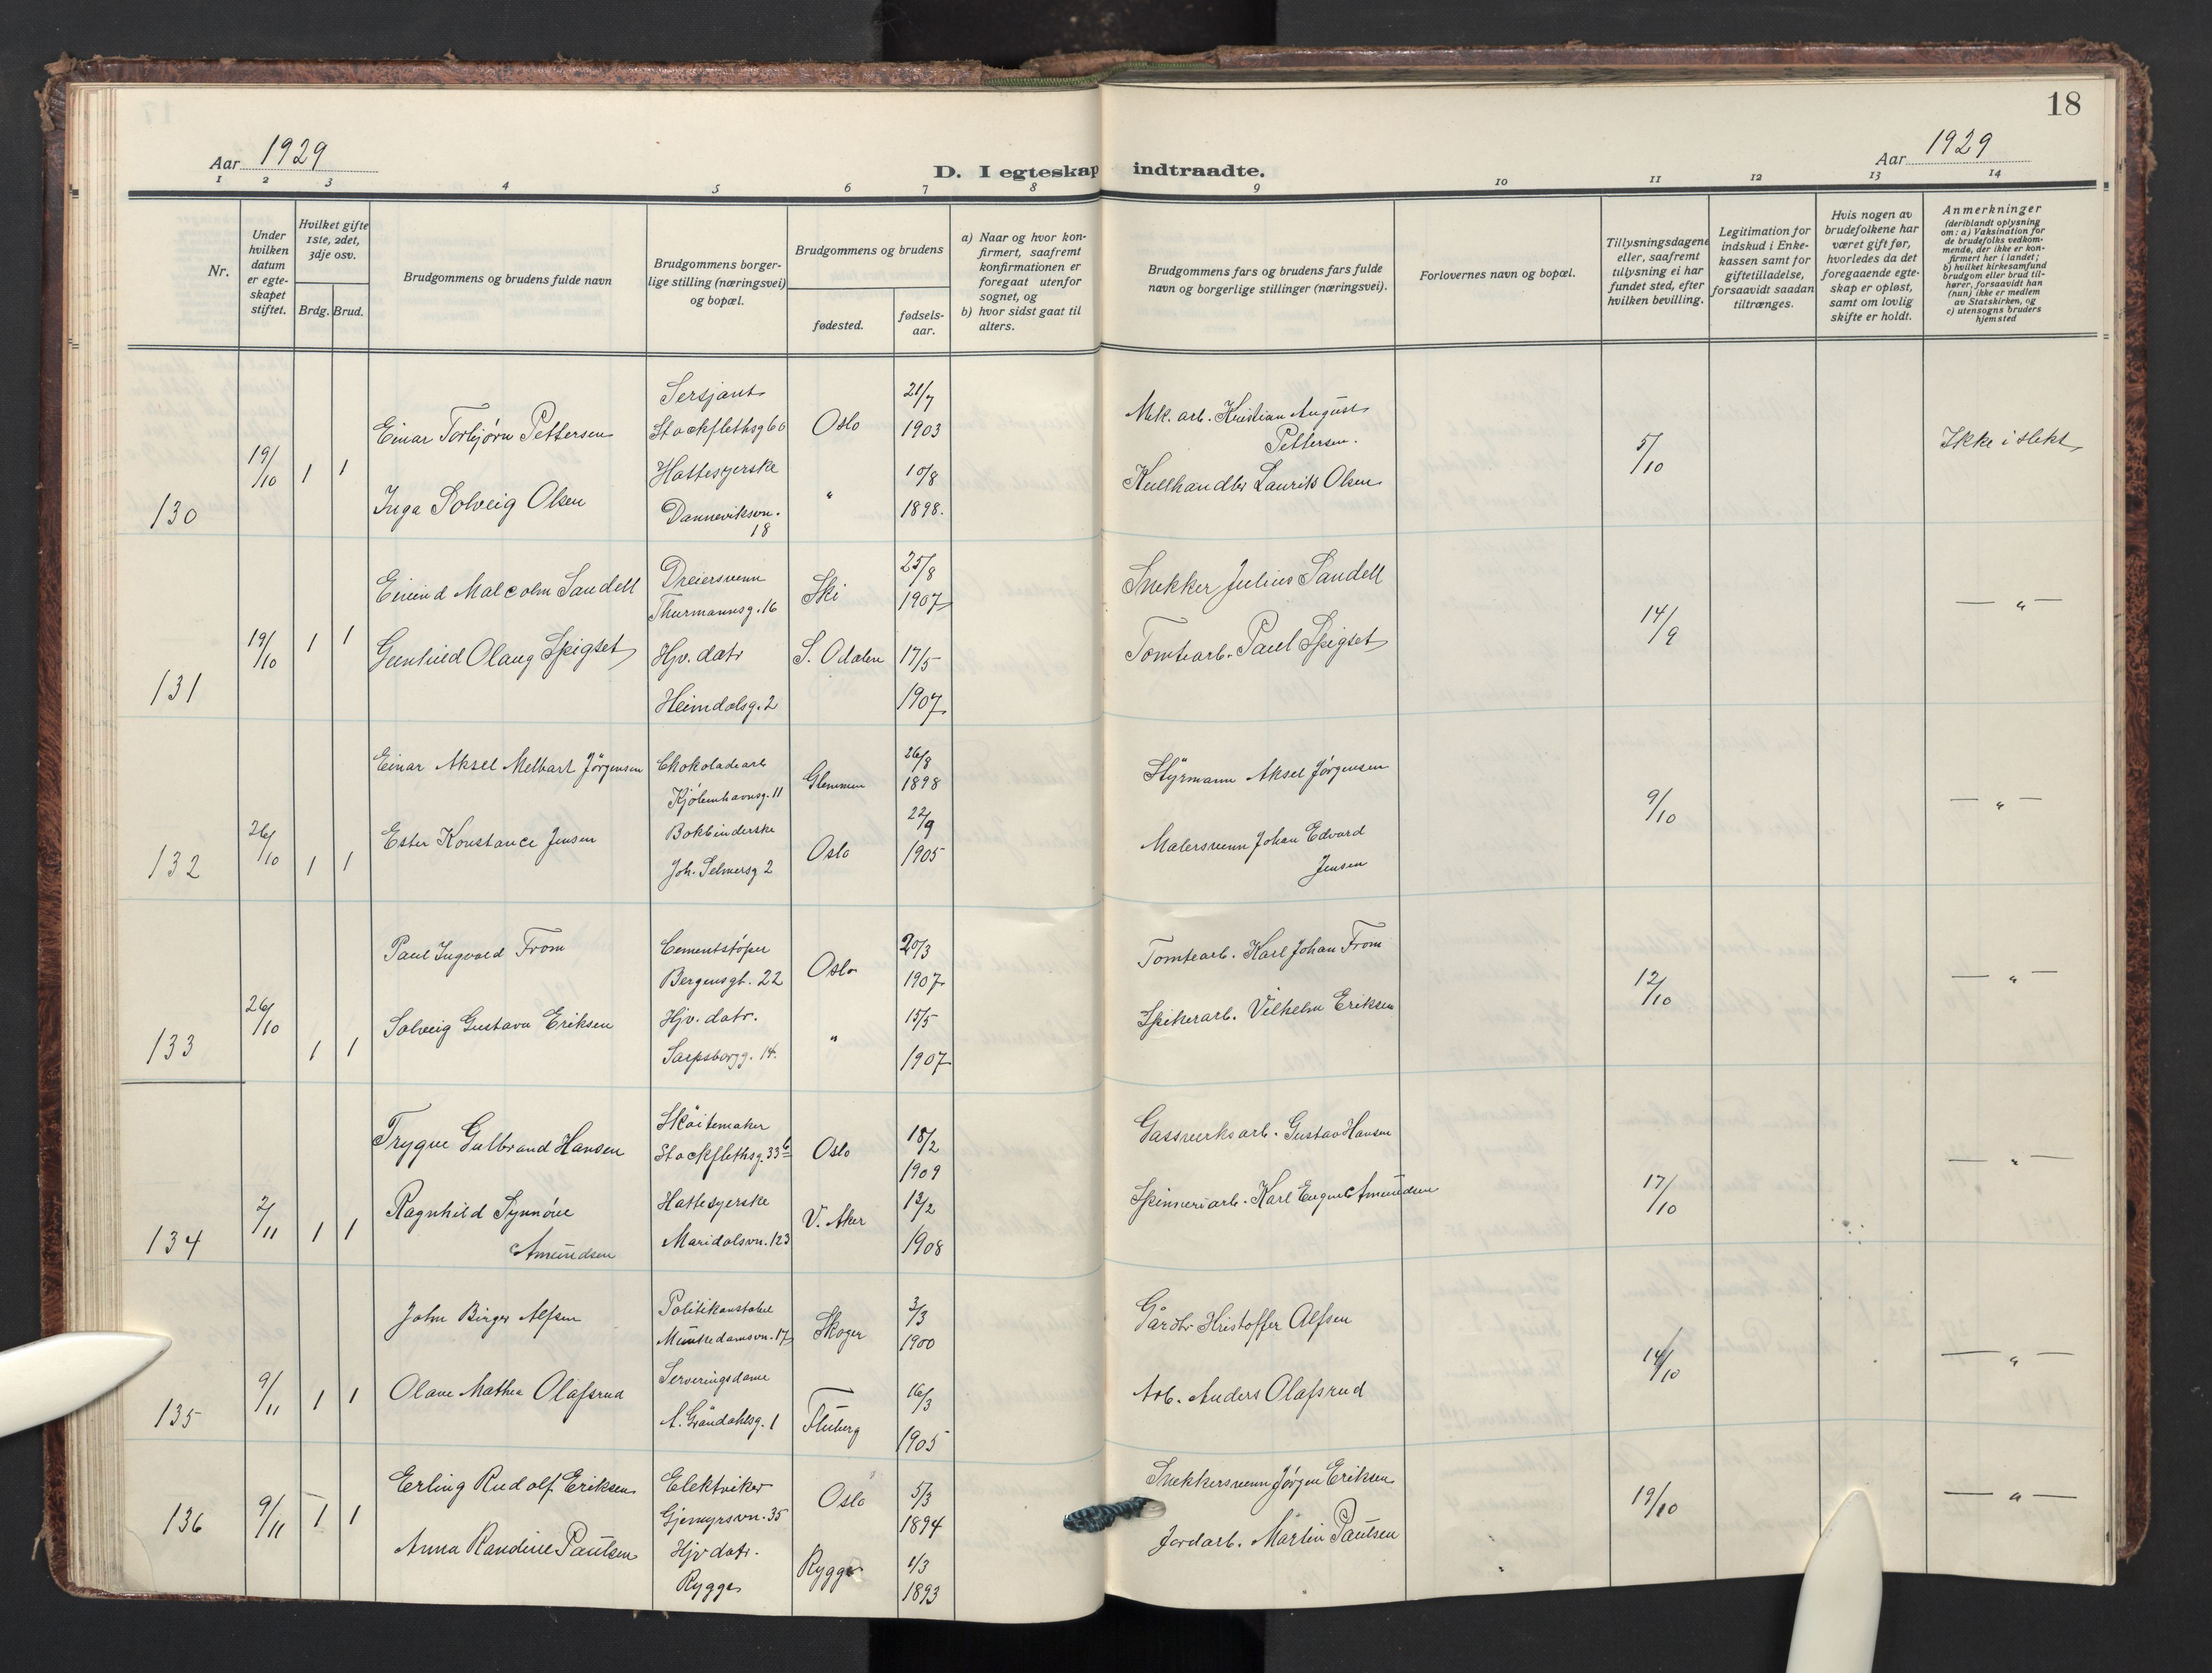 18
Aar 1929
D. I egteskap indtraadte.
Aar 1929
1 2 3 4 5 6 7 8 9 10 11 12 13 14
Nr.
Under hvilken datum er egteskapet stiftet.
Hvilket gifte 1ste, 2det, 3dje osv.
Brdg. Brud.
Brudgommens og brudens fulde navn
Brudgommens borgerlige stilling (næringsvei) og bopæl.
Brudgommens og brudens
fødested.
fødselsaar.
a) Naar og hvor konfirmert, saafremt konfirmationen er foregaat utenfor sognet, og
b) hvor sidst gaat til alters.
Brudgommens fars og brudens fars fulde navn og borgerlige stillinger (næringsvei).
Forlovernes navn og bopæl.
Tillysningsdagene eller, saafremt tillysning ei har fundet sted, efter hvilken bevilling.
Legitimation for indskud i Enkekassen samt for giftetilladelse, forsaavidt saadan tiltrænges.
Hvis nogen av brudefolkene har været gift før, hvorledes da det foregaaende egteskap er opløst, samt om lovlig skifte er holdt.
Anmerkninger
(deriblandt oplysning om: a) Vaksination for de brudefolks vedkommende, der ikke er konfirmert her i landet; b) hvilket kirkesamfund brudgom eller brud tilhører, forsaavidt han (hun) ikke er medlem av Statskirken, og c) utensogns bruders hjemsted
130 19/10 1 1
Einar Torbjørn Pettersen
Sersjant
Stockflethsg 60
Oslo
21/7
1903
Mek. arb. Kristian August
Pettersen.
5/10
Ikke i slekt
Inga Solveig Olsen
Hattesyerske
Danneviksvn.
18
"
10/8
1898.
Kullhandler Laurits Olsen
131 19/10 1 1
Eivind Malcolm Sandell
Dreiersvenn
Thurmannsg. 16
Ski
25/8
1907
Snekker Julius Sandell
14/9
— " —
Gunhild Olaug Spigset
Hjv. datr
Heimdalsg. 2
S. Odalen
17/5
1907
Tomtearb. Paul Spigset
132 26/10 1 1
Einar Aksel Melbart Jørgensen
Chokoladearb
Kjøbenhavnsg. 11
Glemmen
26/8
1898
Styrmann Aksel Jørgensen
9/10
— " —
Ester Konstance Jensen
Bokbinderske
Joh. Selmersg 2
Oslo
22/9
1905
Malersvenn Johan Edvard
Jensen
133 26/10 1 1
Paul Ingvald From
Cementstøper
Bergensgt. 22
Oslo
20/3
1907
Tomtearb. Karl Johan From
12/10
— " —
Solveig Gustava Eriksen
Hjv. datr.
Sarpsborgg. 14.
"
15/5
1907
Spikerarb. Vilhelm Eriksen
134 2/11 1 1
Trygve Gulbrand Hansen
Skøitemaker
Stockflethsg. 33 b
Oslo
18/2
1909
Gassverksarb. Gustav Hansen
17/10
— " —
Ragnhild Synnøve
Amundsen
Hattesyerske
Maridalsvn. 123
V. Aker
12/2
1908
Spinneriarb. Karl Eugen Amundsen
135 9/11 1 1
John Birger Alfsen
Politikonstabel
Munkedamsvn. 17
Skoger
3/3
1900
Gårdbr Kristoffer Alfsen
14/10
— " —
Olave Mathea Olafsrud
Serveringsdame
A. Grøndahlsg. 1
Fluberg
16/3
1905
Arb. Anders Olafsrud
136 9/11 1 1
Erling Rudolf Eriksen
Elektriker
Gjemyrsvn. 35
Oslo
5/3
1894
Snekkersvenn Jørgen Eriksen
19/10
— " —
Anna Randine Paulsen
Hjv datr.
Rygge
Rygge
1/3
1893
Jordarb. Martin Paulsen